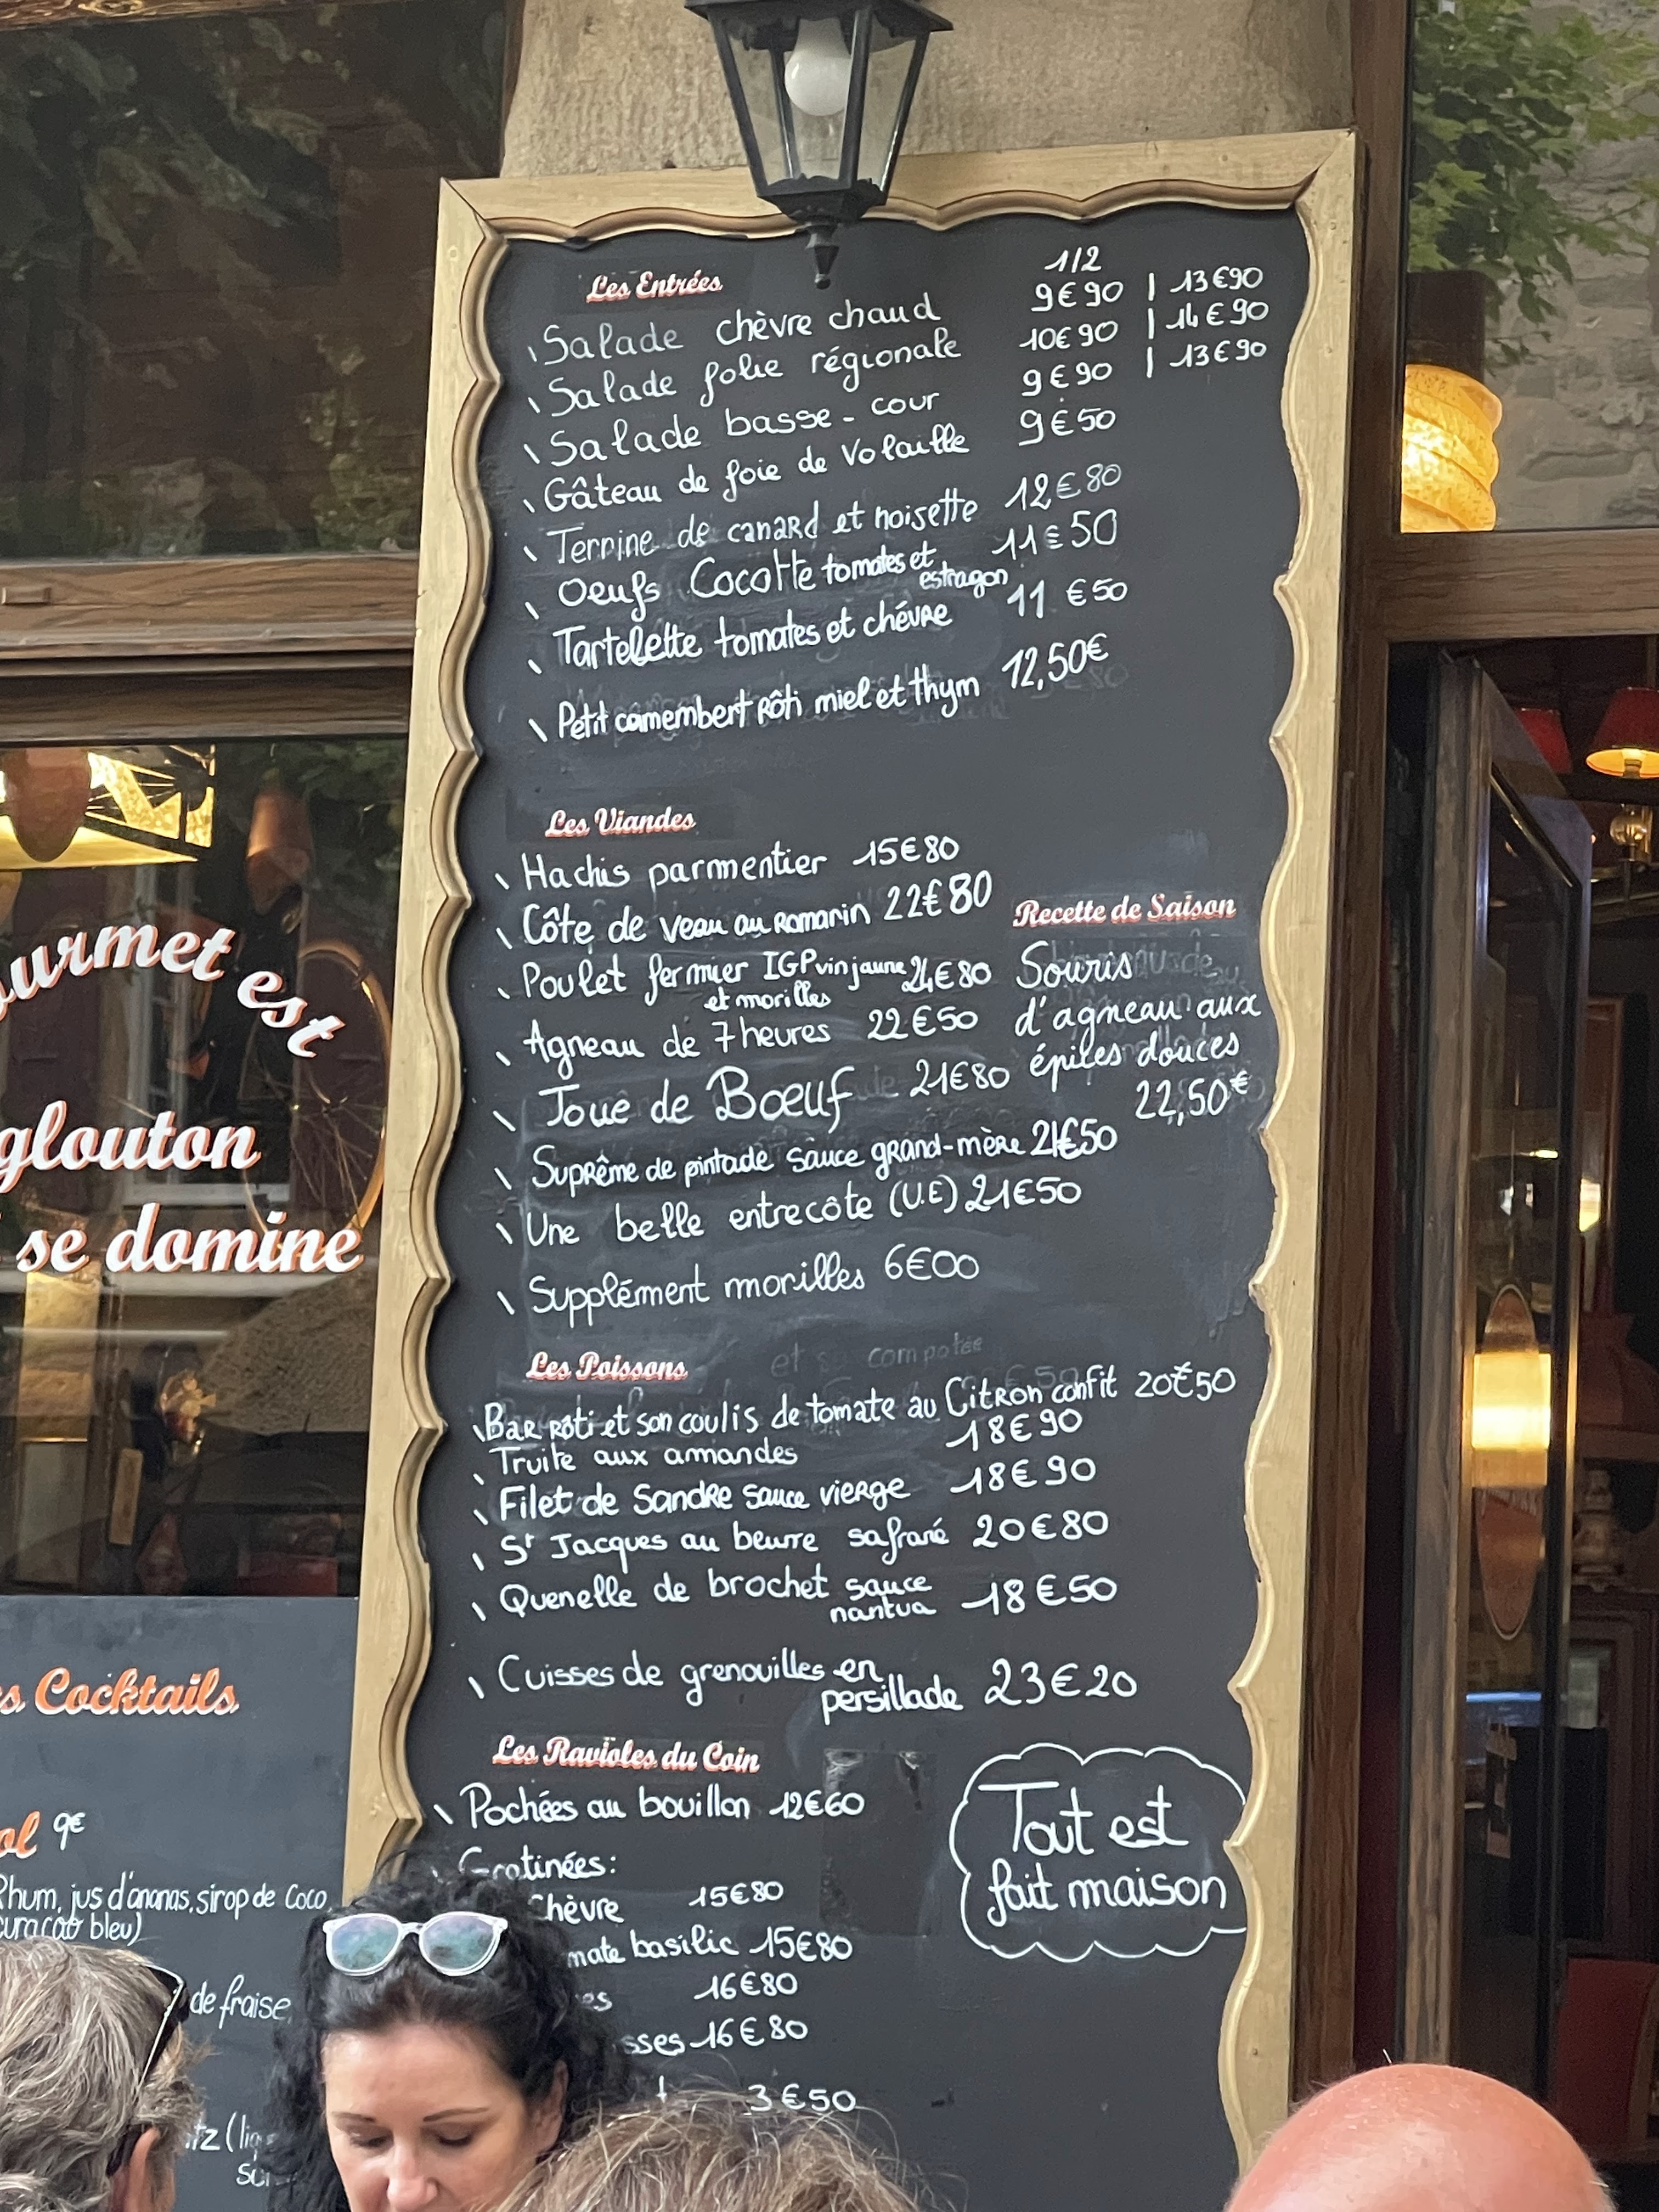 Les Entrées
1/2
\ Salade chèvre chaud 9€90 | 13€90
\ Salade folie régionale 10€90 | 14€90
\ Salade basse-cour 9€90 | 13€90
\ Gâteau de foie de Volaille 9€50
\ Terrine de canard et noisette 12€80
\ Oeufs Cocotte tomates et 11€50
estragon
\ Tartelette tomates et chévre 11€50
\ Petit camembert rôti miel et thym 12,50€
Les Viandes
\ Hachis parmentier 15€80
\ Côte de veau au Romarin 22€80
\ Poulet fermier IGP vin jaune 24€80
et morilles
\ Agneau de 7 heures 22€50
\ Joue de Bœuf 21€80
\ Suprême de pintade sauce grand-mère 21€50
\ Une belle entrecôte (U.E) 21€50
\ Supplément morilles 6€00
Recette de Saison
Souris
d'agneau aux
épices douces
22,50€
Les Poissons
et compotée
\ Bar rôti et son coulis de tomate au Citron confit 20€50
\ Truite aux amandes 18€90
\ Filet de Sandre sauce vierge 18€90
\ St Jacques au beurre safrané 20€80
\ Quenelle de brochet sauce 18€50
nantua
\ Cuisses de grenouilles en
persillade 23€20
Les Ravioles du Coin
\ Pochées au bouillon 12€60
Gratinées:
Chèvre 15€80
mate basilic 15€80
es 16€80
sses 16€80
3€50
Tout est
fait maison
urmet est
glouton
se domine
s Cocktails
ol 9€
Rhum, jus d'ananas, sirop de Coco,
curacao bleu)
de fraise,
tz (liq